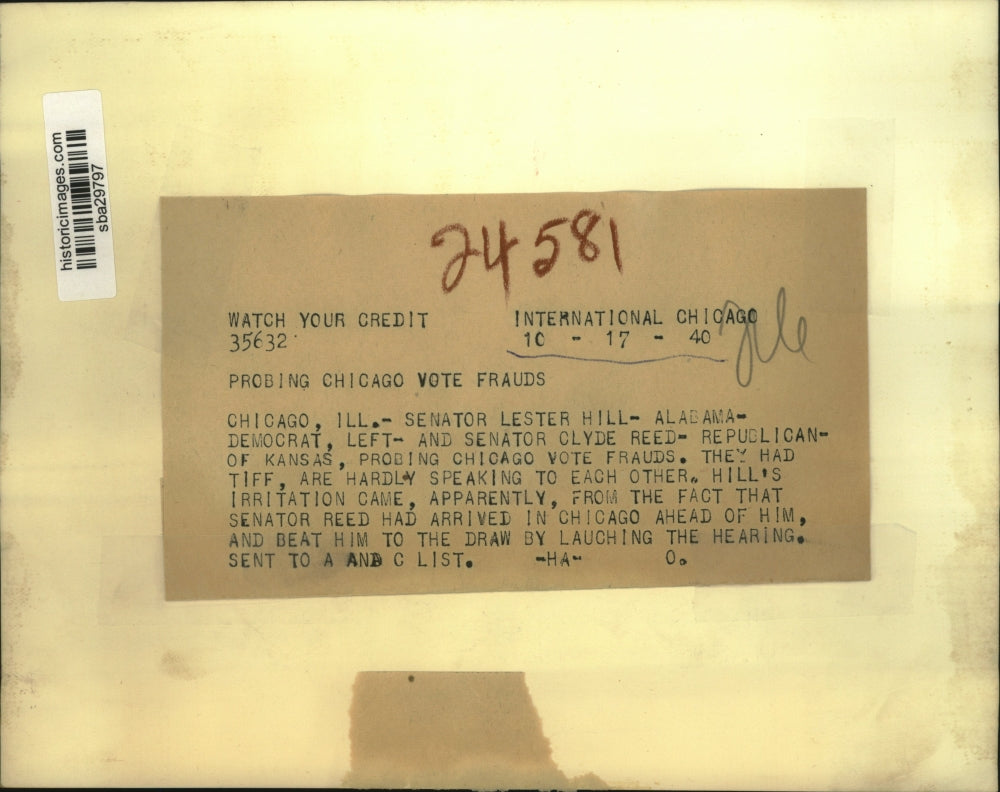 historicimages.com
sba29797
24581
WATCH YOUR CREDIT
INTERNATIONAL CHICAGO
35632
10 - 17 - 40
PROBING CHICAGO VOTE FRAUDS
CHICAGO, ILL.- SENATOR LESTER HILL- ALABAMA-
DEMOCRAT, LEFT- AND SENATOR CLYDE REED- REPUBLICAN-
OF KANSAS, PROBING CHICAGO VOTE FRAUDS. THEY HAD
TIFF, ARE HARDLY SPEAKING TO EACH OTHER. HILL'S
IRRITATION CAME, APPARENTLY, FROM THE FACT THAT
SENATOR REED HAD ARRIVED IN CHICAGO AHEAD OF HIM,
AND BEAT HIM TO THE DRAW BY LAUCHING THE HEARING.
SENT TO A AND C LIST. -HA- O.